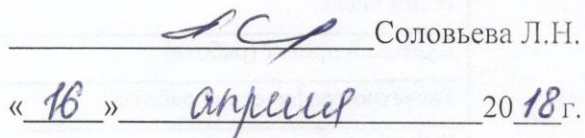 Соловьева Л.Н.
«16» апреля 2018г.